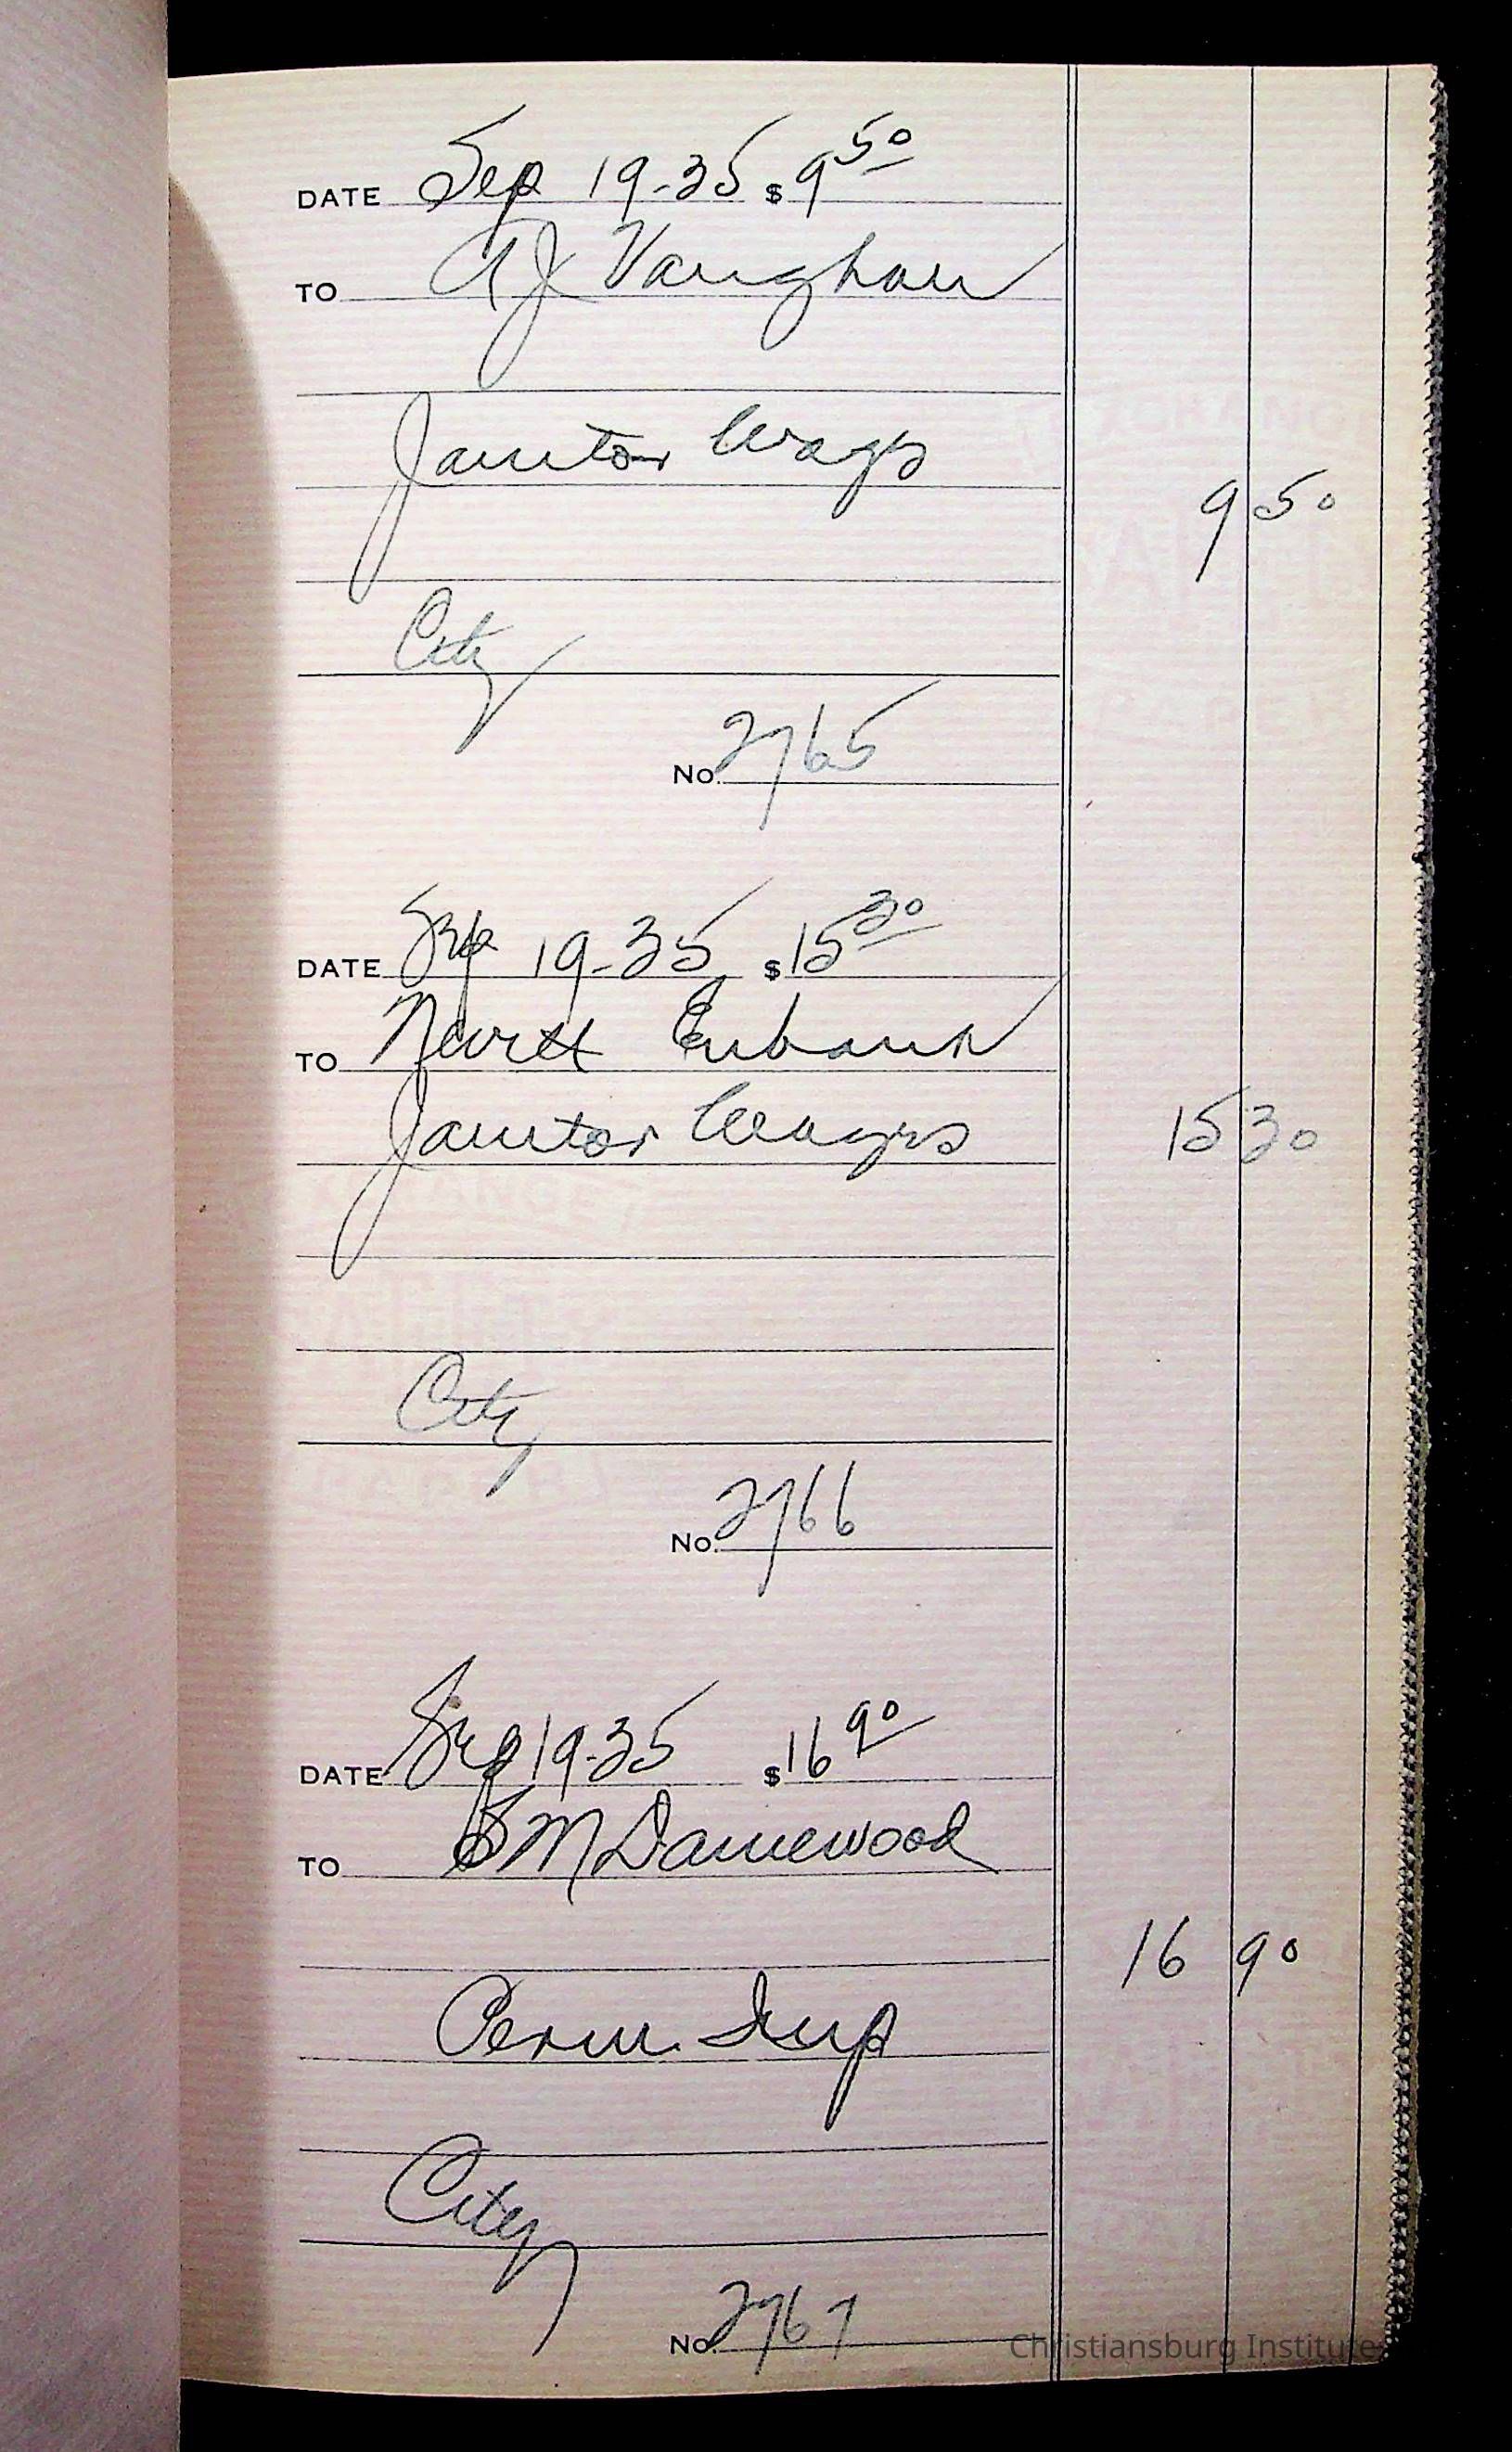 DATE Sep 19-35 $ 9 50
TO A J Vaughan
Janitor Wages
9 50
City
No. 2765
DATE Sep 19-35 $ 15 30
TO Eubank
Janitor Wages
15 30
City
No. 2766
DATE Sep 19-35 $ 16 90
TO M Damewood
16 90
Perm. Imp
City
No. 2767
Christiansburg Institute